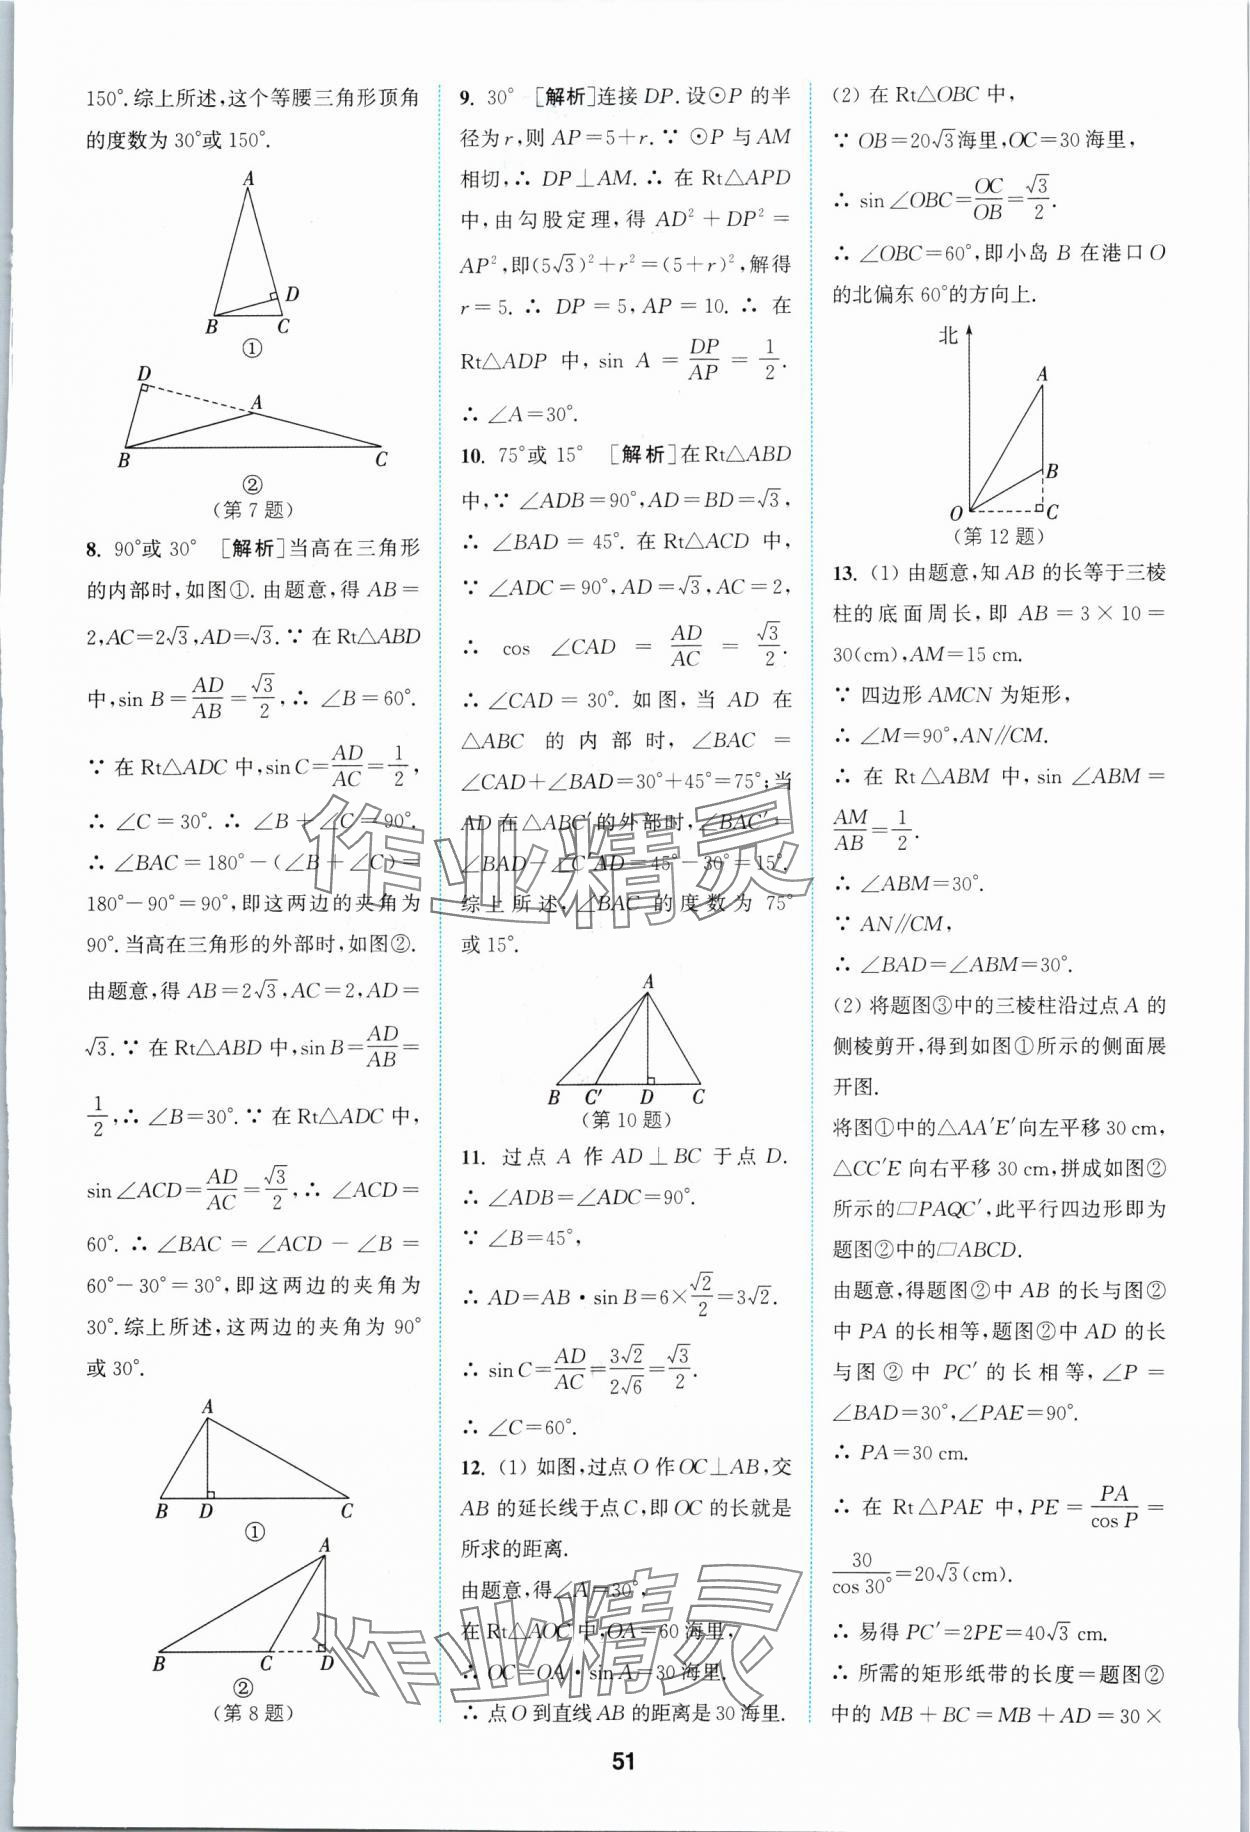 150°.综上所述,这个等腰三角形顶角
的度数为30°或150°.
A
D
B
C
①
D
A
B
C
②
(第7题)
8. 90°或30° [解析]当高在三角形
的内部时,如图①.由题意,得AB=
2,AC=2√3,AD=√3.∵在Rt△ABD
中,sin B=AD/AB=√3/2,∴∠B=60°.
∵在Rt△ADC中,sin C=AD/AC=1/2,
∴∠C=30°.∴∠B+∠C=90°.
∴∠BAC=180°-(∠B+∠C)=
180°-90°=90°,即这两边的夹角为
90°.当高在三角形的外部时,如图②.
由题意,得AB=2√3,AC=2,AD=
√3.∵在Rt△ABD中,sin B=AD/AB=
1/2,∴∠B=30°.∵在Rt△ADC中,
sin∠ACD=AD/AC=√3/2,∴∠ACD=
60°.∴∠BAC=∠ACD-∠B=
60°-30°=30°,即这两边的夹角为
30°.综上所述,这两边的夹角为90°
或30°.
A
B
D
C
①
A
B
C
D
②
(第8题)
9. 30° [解析]连接DP.设⊙P的半
径为r,则AP=5+r.∵⊙P与AM
相切,∴DP⊥AM.∴在Rt△APD
中,由勾股定理,得AD²+DP²=
AP²,即(5√3)²+r²=(5+r)²,解得
r=5.∴DP=5,AP=10.∴在
Rt△ADP中,sin A=DP/AP=1/2.
∴∠A=30°.
10. 75°或15° [解析]在Rt△ABD
中,∵∠ADB=90°,AD=BD=√3,
∴∠BAD=45°.在Rt△ACD中,
∵∠ADC=90°,AD=√3,AC=2,
∴cos∠CAD=AD/AC=√3/2.
∴∠CAD=30°.如图,当AD在
△ABC的内部时,∠BAC=
∠CAD+∠BAD=30°+45°=75°;当
AD在△ABC′的外部时,∠BAC′=
∠BAD-∠C′AD=45°-30°=15°.
综上所述,∠BAC的度数为75°
或15°.
A
B
C′
D
C
(第10题)
11. 过点A作AD⊥BC于点D.
∴∠ADB=∠ADC=90°.
∵∠B=45°,
∴AD=AB·sin B=6×√2/2=3√2.
∴sin C=AD/AC=3√2/2√6=√3/2.
∴∠C=60°.
12. (1) 如图,过点O作OC⊥AB,交
AB的延长线于点C,即OC的长就是
所求的距离.
由题意,得∠A=30°,
在Rt△AOC中,OA=60海里,
∴OC=OA·sin A=30海里.
∴点O到直线AB的距离是30海里.
(2) 在Rt△OBC中,
∵OB=20√3海里,OC=30海里,
∴sin∠OBC=OC/OB=√3/2.
∴∠OBC=60°,即小岛B在港口O
的北偏东60°的方向上.
北
A
B
O
C
(第12题)
13. (1) 由题意,知AB的长等于三棱
柱的底面周长,即AB=3×10=
30(cm),AM=15 cm.
∵四边形AMCN为矩形,
∴∠M=90°,AN∥CM.
∴在Rt△ABM中,sin∠ABM=
AM/AB=1/2.
∴∠ABM=30°.
∵AN∥CM,
∴∠BAD=∠ABM=30°.
(2) 将题图③中的三棱柱沿过点A的
侧棱剪开,得到如图①所示的侧面展
开图.
将图①中的△AA′E′向左平移30 cm,
△CC′E向右平移30 cm,拼成如图②
所示的▱PAQC′,此平行四边形即为
题图②中的▱ABCD.
由题意,得题图②中AB的长与图②
中PA的长相等,题图②中AD的长
与图②中PC′的长相等,∠P=
∠BAD=30°,∠PAE=90°.
∴PA=30 cm.
∴在Rt△PAE中,PE=PA/cos P=
30/cos 30°=20√3(cm).
∴易得PC′=2PE=40√3 cm.
∴所需的矩形纸带的长度=题图②
中的MB+BC=MB+AD=30×
51
作业精灵
作业精灵